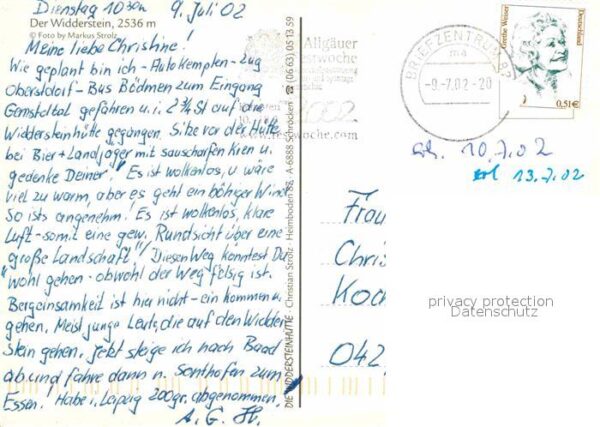 Dienstag 10 30h 9. Juli 02
Der Widderstein, 2536 m
© Foto by Markus Strolz
Meine liebe Christine!
Wie geplant bin ich - Auto Kempten - Zug
Oberstdorf - Bus Bödmen zum Eingang
Gemsteltal gefahren u. i. 2 ¾ St auf die
Widdersteinhütte gegangen. Sitze vor der Hütte
bei Bier + Landjäger mit sauscharfen Kren u.
gedenke Deiner. Es ist wolkenlos, u wäre
viel zu warm, aber es geht ein böhiger Wind
So ists angenehm! Es ist wolkenlos, klare
Luft - somit eine gew. Rundsicht über eine
große Landschaft! Diesen Weg könntest Du
wohl gehen - obwohl der Weg felsig ist.
Bergeinsamkeit ist hier nicht - ein kommen u.
gehen. Meist junge Leute, die auf den Widder
stein gehen. Jetzt steige ich nach Baad
ab und fahre dann n. Sonthofen zum
Essen. Habe i. Leipzig 200gr. abgenommen.
A. G. H.
DIE WIDDERSTEINHÜTTE · Christian Strolz · Heimboden 82 · A-6888 Schröcken · ☎ (06 63) 05 13 59
Allgäuer
Festwoche
2002
www.festwoche.com
BRIEFZENTRUM 87
ma
-9.-7.02-20
Grethe Weiser
Deutschland
0,51€
10.7.02
13.7.02
Frau
Chris
Koc
042
privacy protection
Datenschutz